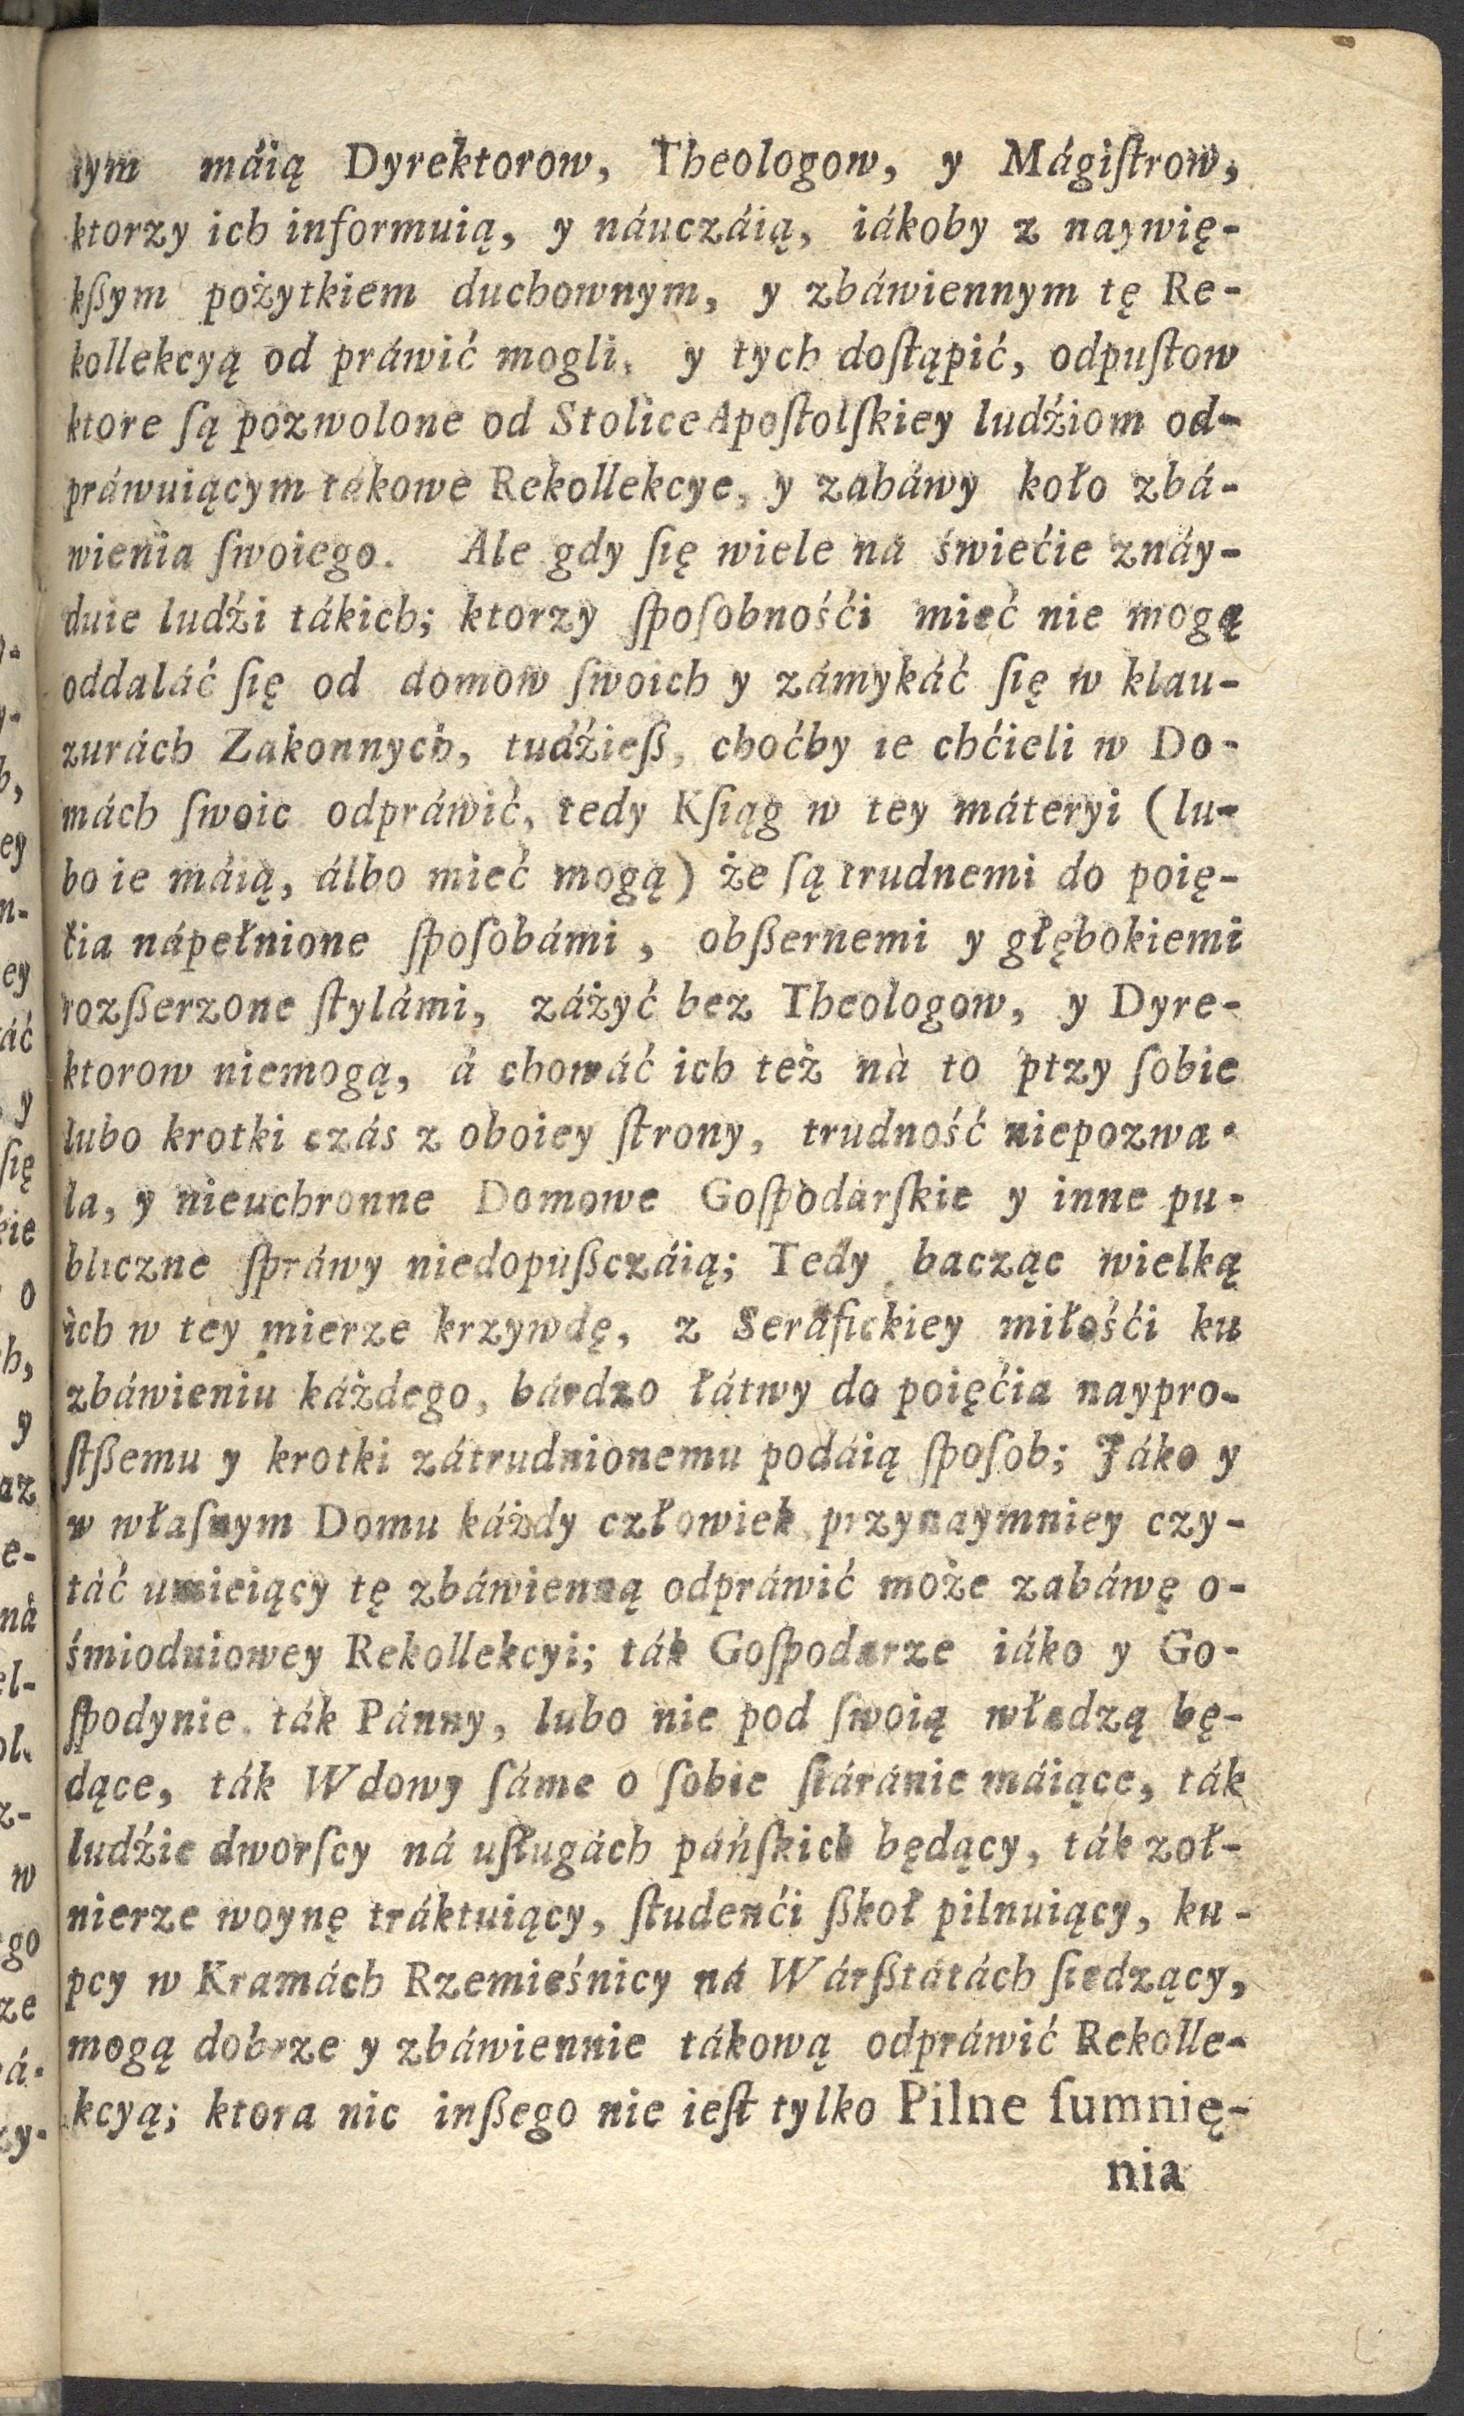 tym máią Dyrektorow, Theologow, y Mágiſtrow,
ktorzy ich informuią, y náuczáią, iákoby z naywię-
kßym pożytkiem duchownym, y zbáwiennym tę Re-
kollekcyą od práwić mogli, y tych doſtąpić, odpuſtow
ktore ſą pozwolone od Stolice Apoſtolſkiey ludźiom od-
práwuiącym tákowe Rekollekcye, y zabáwy koło zbá-
wienia ſwoiego. Ale gdy ſię wiele ná świećie znáy-
duie ludźi tákich; ktorzy ſpoſobnośći mieć nie mogą
oddaláć ſię od domow ſwoich y zámykáć ſię w klau-
zurách Zakonnych, tudźieß, choćby ie chćieli w Do-
mách ſwoic odpráwić, tedy Kſiąg w tey máteryi (lu-
bo ie máią, álbo mieć mogą) że ſą trudnemi do poię-
ćia nápełnione ſpoſobámi, obßernemi y głębokiemi
rozßerzone ſtylámi, záżyć bez Theologow, y Dyre-
ktorow niemogą, á chowáć ich też nà to ptzy ſobie
lubo krotki czás z oboiey ſtrony, trudność niepozwa-
la, y nieuchronne Domowe Goſpodárſkie y inne pu-
bliczne ſpráwy niedopußczáią; Tedy bacząc wielką
ich w tey mierze krzywdę, z Seráfickiey miłośći ku
zbáwieniu káżdego, bárdzo łátwy do poięćia naypro-
ſtßemu y krotki zátrudnionemu podáią ſpoſob; Jáko y
w własnym Domu káżdy człowiek przynaymniey czy-
táć umieiący tę zbáwienną odpráwić może zabáwę o-
śmiodniowey Rekollekcyi; ták Goſpodarze iáko y Go-
ſpodynie. ták Pánny, lubo nie pod ſwoią władzą bę-
dące, ták Wdowy ſáme o ſobie ſtáránie máiące, ták
ludźie dworſcy ná uſługách páńſkich będący, ták zoł-
nierze woynę tráktuiący, ſtudenći ßkoł pilnuiący, ku-
pcy w Kramách Rzemieśnicy ná Wárßtátách ſiedzący,
mogą dobrze y zbáwiennie tákową odpráwić Rekolle-
kcyą; ktora nic inßego nie ieſt tylko Pilne ſumnię-
nia